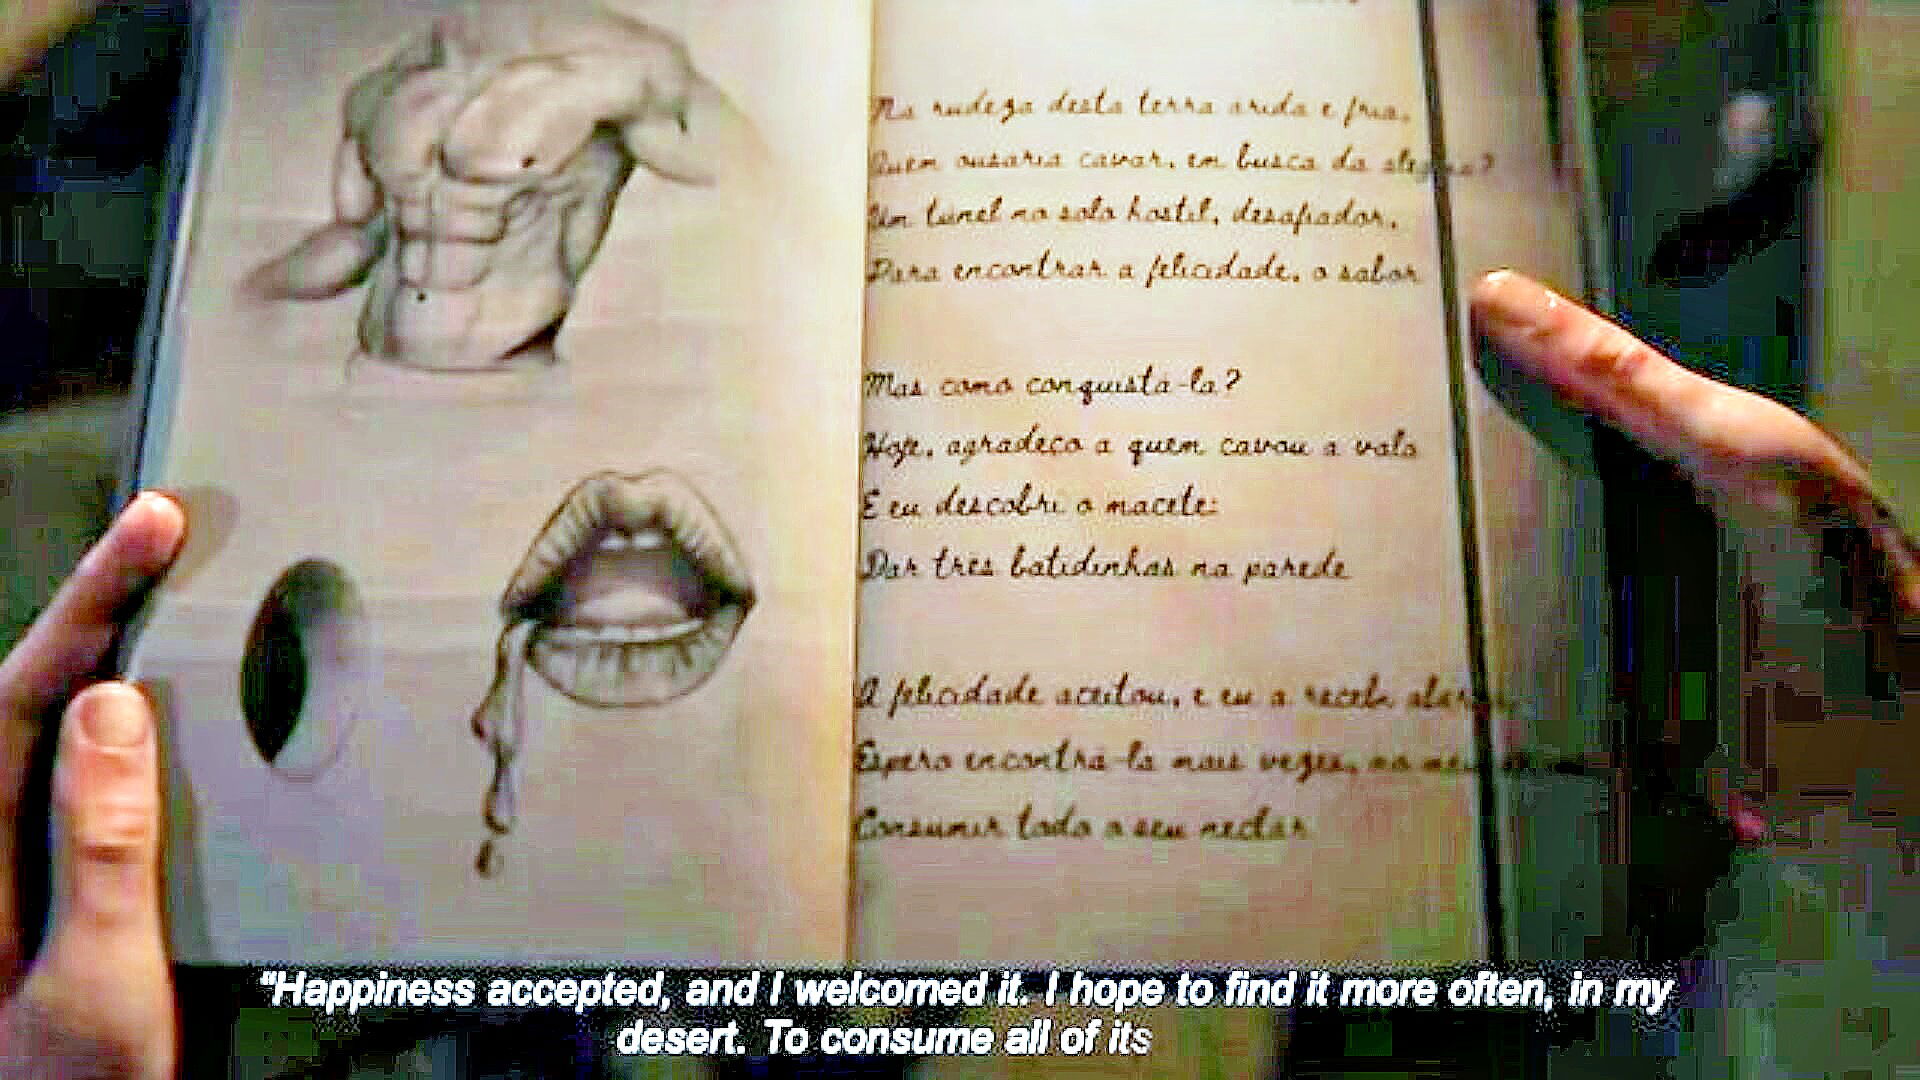 Na rudeza desta terra arida e fria,
Quem ousaria cavar, em busca da alegria?
Um túnel no solo hostil, desafiador,
Para encontrar a felicidade, o sabor
Mas como conquistá-la?
Hoje, agradeço a quem cavou a vala
E eu descobri o macete:
Dar três batidinhas na parede
A felicidade aceitou, e eu a recebi
Espero encontrá-la mais vezes, no meu
Consumir todo o seu nectar
“Happiness accepted, and I welcomed it. I hope to find it more often, in my
desert. To consume all of its